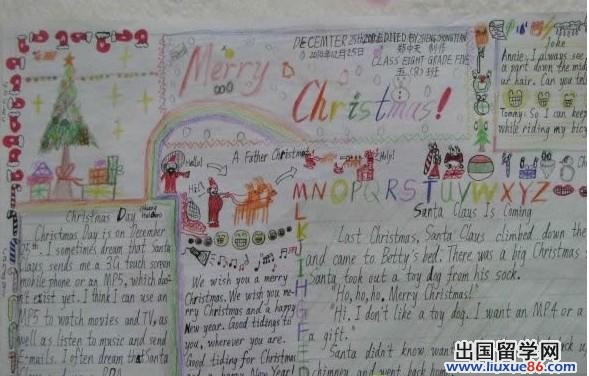 DECEMTER 25TH, 2010 EDITED BY:ZHENG ZHONGTIAN
2010年12月25日 郑中天 制作
CLASS EIGHT GRADE FIVE
五.(8)班
Merry
Christmas!
Joke
Annie: I always see
a part down the mid
ur hair. Can you tel
Tonny: So I can keep
while riding my bicy
Hello!
Hi!
A Father Christmas
Help!
MNOPQRSTUVWXYZ
L
K
J
I
H
G
F
E
Christmas Day
Christmas Day is on December
25th. I sometimes dream that Santa
Claus sends me a 3G touch screen
mobile phone or an MP5, which doe
n't exist yet. I think I can use an
MP5 to watch movies and TV, as
well as listen to music and send
E-mails. I often dream that Santa
We wish you a merry
Christmas. We wish you me-
rry Christmas and a happy
New year. Good tidings to
you, wherever you are.
Good tiding for Christmas
and a happy New Year!
Santa Claus Is Coming
Last Christmas, Santa Claus climbed down the
and came to Betty's bed. There was a big Christmas s
Santa took out a toy dog from his sock.
Ho, ho, ho. Merry Christmas!"
"Hi. I don't like a toy dog. I want an MP4 or a
a gift."
Santa didn't know want
chimney and went back home
出国留学网
www.liuxue86.com